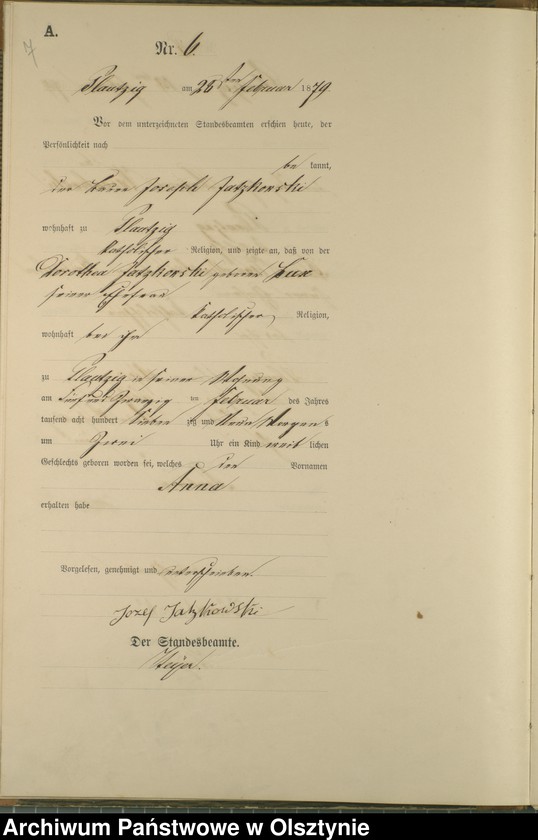 A.
7
Nr. 6.
Plautzig am 26ten Februar 1879.
Vor dem unterzeichneten Standesbeamten erschien heute, der
Persönlichkeit nach
be kannt,
der Joseph Jatzkowski
wohnhaft zu Plautzig
katholischer Religion, und zeigte an, daß von der
Dorothea Jatzkowski geborene Lux
seiner Ehefrau
katholischer Religion,
wohnhaft bei ihm
zu Plautzig in seiner Wohnung
am fünf und zwanzig ten Februar des Jahres
tausend acht hundert sieben zig und neun Morgens
um zwei Uhr ein Kind weib lichen
Geschlechts geboren worden sei, welches den Vornamen
Anna
erhalten habe
Vorgelesen, genehmigt und unterschrieben.
Jozef Jatzkowski
Der Standesbeamte.
Archiwum Państwowe w Olsztynie